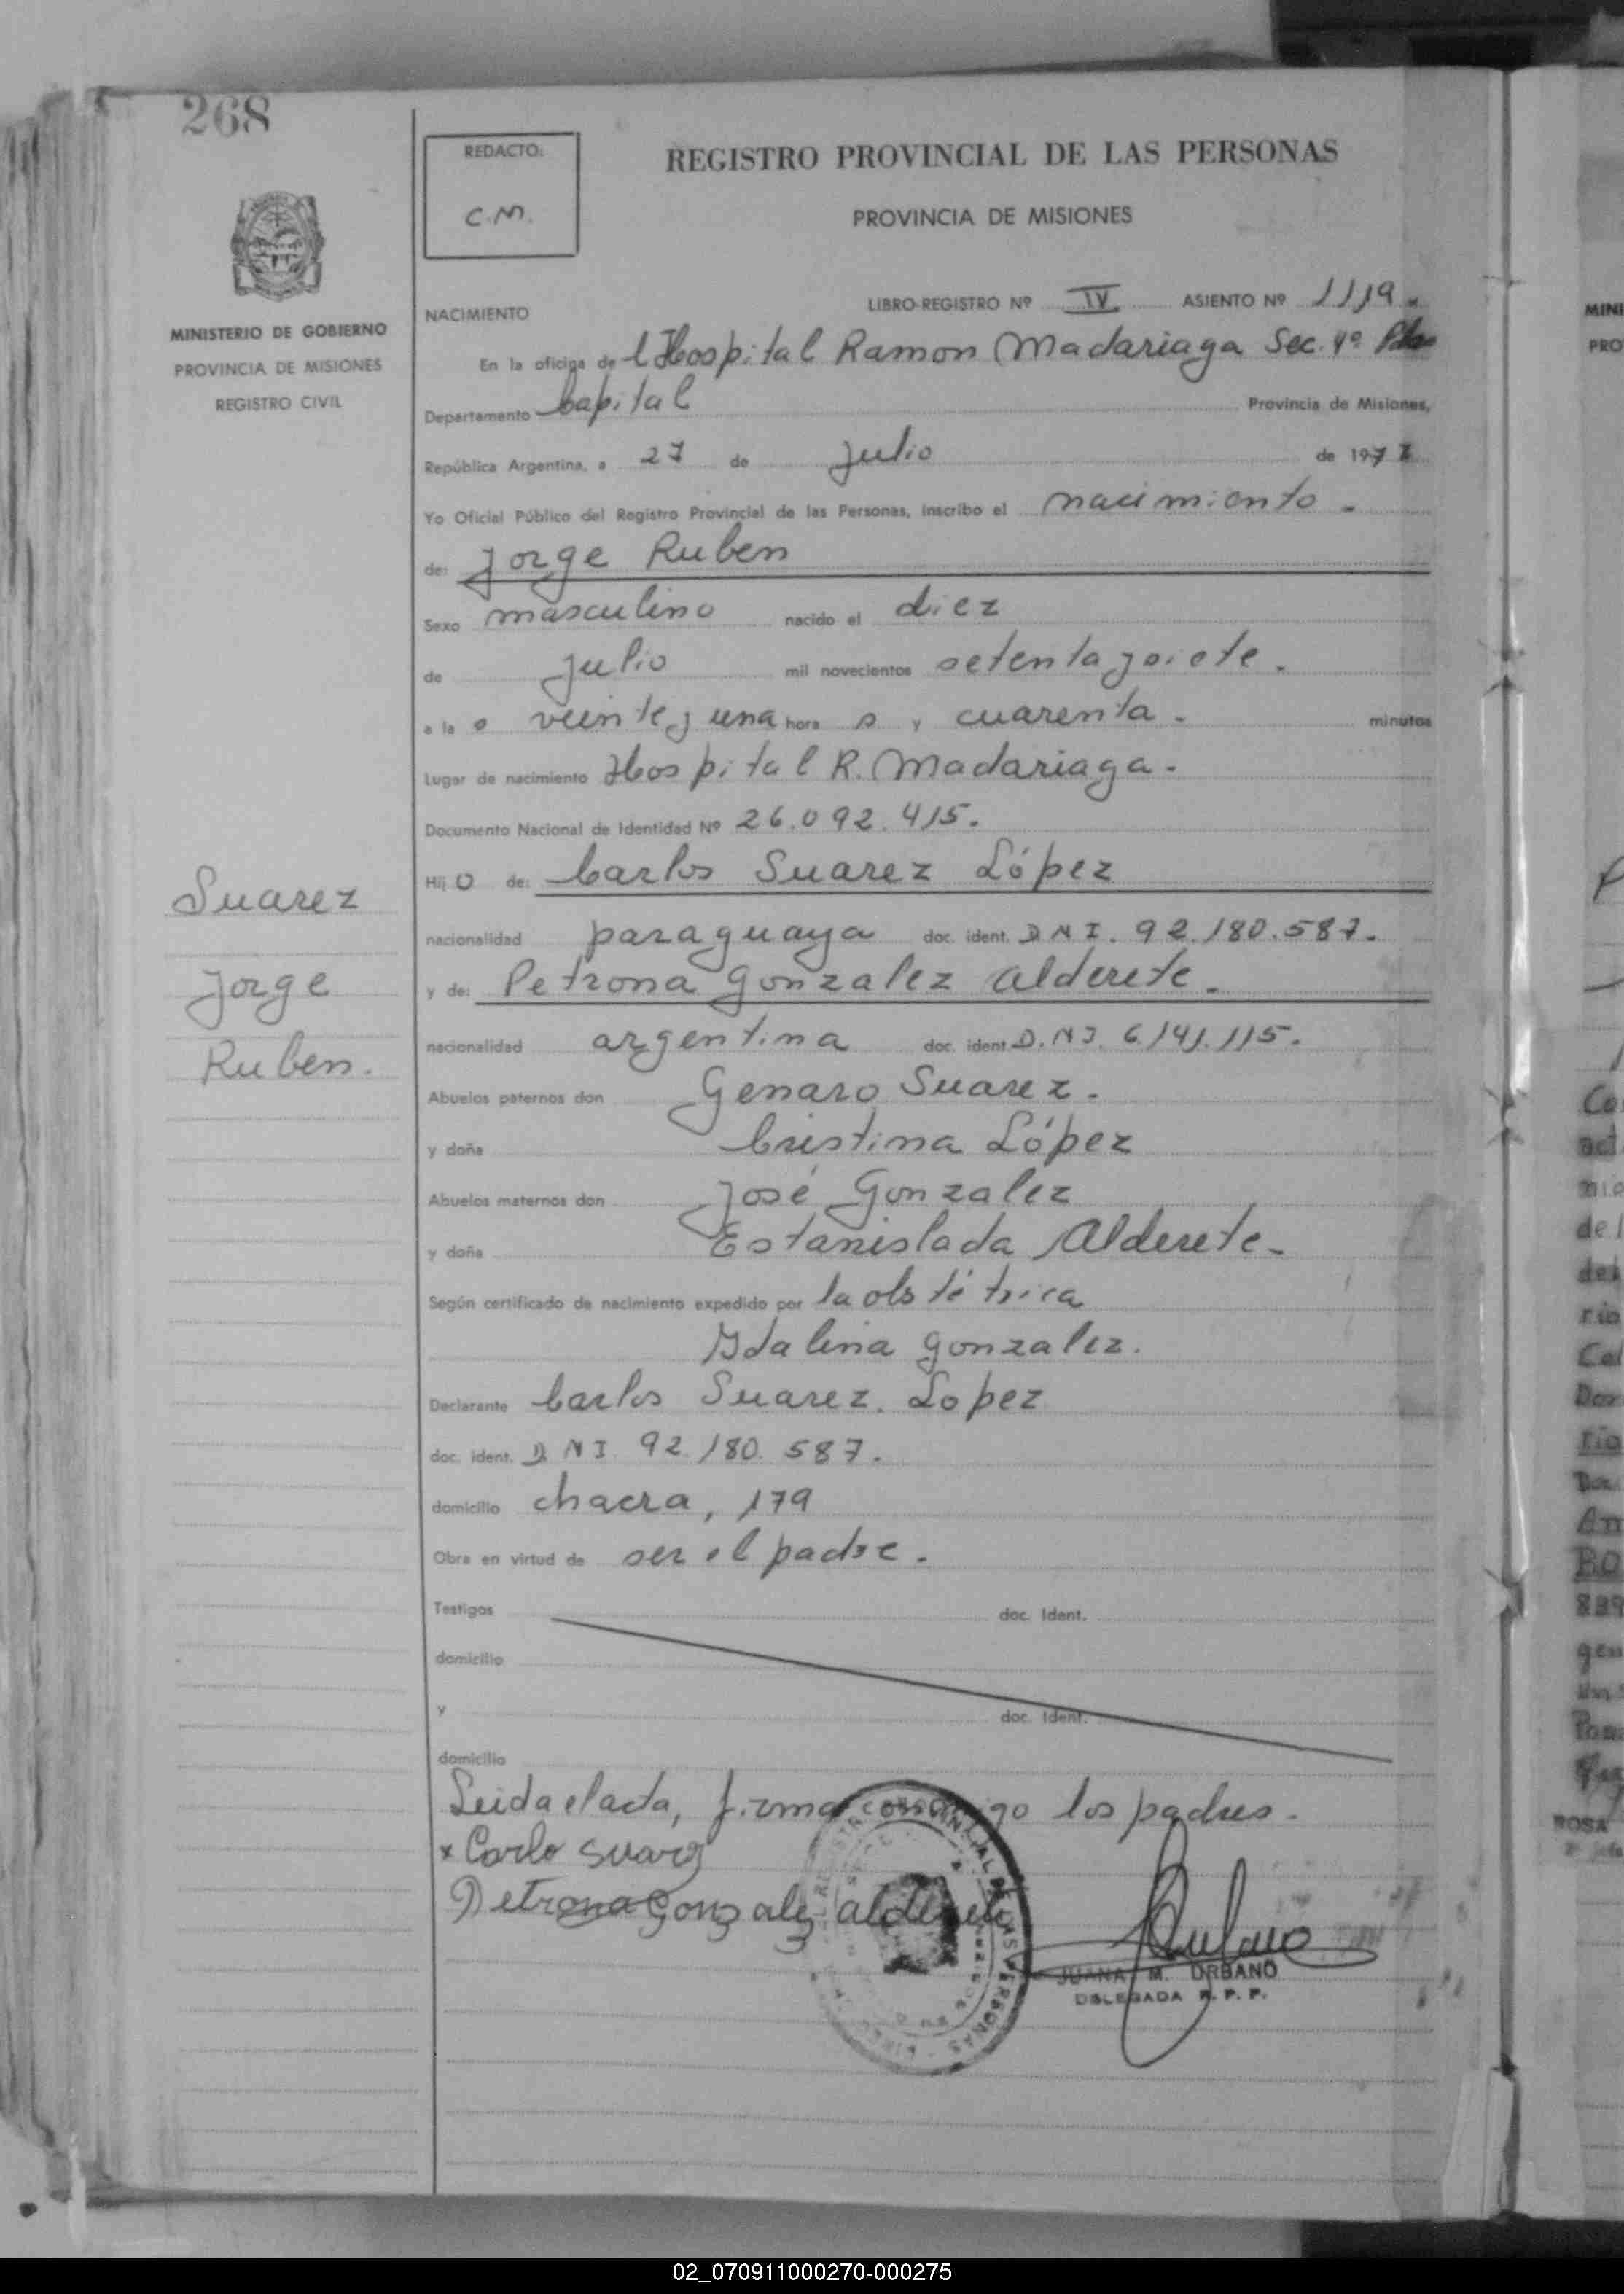 268
REDACTO:
C.M.
REGISTRO PROVINCIAL DE LAS PERSONAS
PROVINCIA DE MISIONES
MINISTERIO DE GOBIERNO
PROVINCIA DE MISIONES
REGISTRO CIVIL
NACIMIENTO
LIBRO-REGISTRO Nº IV ASIENTO Nº 1119.
En la oficina de l Hospital Ramon Madariaga Sec. 4º
Departamento Capital Provincia de Misiones,
República Argentina, a 27 de Julio de 1977
Yo Oficial Público del Registro Provincial de las Personas, inscribo el nacimiento.
de: Jorge Ruben
Sexo masculino nacido el diez
de Julio mil novecientos setenta y siete.
a la s veinte y una hora s y cuarenta. minutos
Lugar de nacimiento Hospital R. Madariaga.
Documento Nacional de Identidad Nº 26.092.415.
Hij o de: Carlos Suarez López
nacionalidad paraguaya doc. ident. DNI. 92.180.587.
y de: Petrona Gonzalez Alderete.
nacionalidad argentina doc. ident. D.NI. 6.141.115.
Abuelos paternos don Genaro Suarez.
y doña Cristina López
Abuelos maternos don José Gonzalez
y doña Estanislada Alderete-
Según certificado de nacimiento expedido por la obstétrica
Idalina Gonzalez.
Declarante Carlos Suarez. Lopez
doc. ident. DNI. 92.180.587.
domicilio chacra, 179
Obra en virtud de ser el padre.
Testigos doc. Ident.
domicilio
y doc. Ident.
domicilio
Leida el acta, firma conmigo los padres.
x Carlo Suarez
Petrona Gonzalez alderete
JUANA M. URBANO
DELEGADA R. P. P.
Suarez
Jorge
Ruben.
MINI
PRO
ROSA
02_070911000270-000275